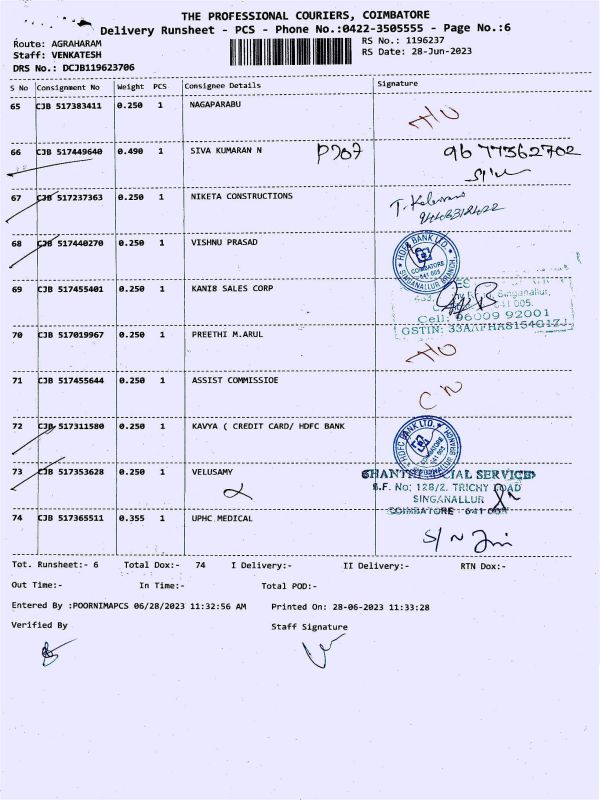 THE PROFESSIONAL COURIERS, COIMBATORE
Delivery Runsheet - PCS - Phone No.:0422-3505555 - Page No.:6
Route: AGRAHARAM
RS No.: 1196237
Staff: VENKATESH
RS Date: 28-Jun-2023
DRS No.: DCJB119623706
S No Consignment No Weight PCS Consignee Details Signature
65 CJB 517383411 0.250 1 NAGAPARABU
66 CJB 517449640 0.490 1 SIVA KUMARAN N 9677562702
67 CJB 517237363 0.250 1 NIKETA CONSTRUCTIONS
68 CJB 517440270 0.250 1 VISHNU PRASAD
HDFC BANK LTD.
COIMBATORE
641 005
SINGANALLUR BRANCH
69 CJB 517455401 0.250 1 KANI8 SALES CORP
Singanallur,
641 005.
Cell: 96009 92001
GSTIN: 33AAFHA8154G1ZJ
70 CJB 517019967 0.250 1 PREETHI M.ARUL
71 CJB 517455644 0.250 1 ASSIST COMMISSIOE
72 CJB 517311580 0.250 1 KAVYA ( CREDIT CARD/ HDFC BANK
HDFC BANK LTD.
COIMBATORE
641 005
73 CJB 517353628 0.250 1 VELUSAMY
SERVICES
S.F. No: 128/2. TRICHY ROAD
SINGANALLUR
COIMBATORE - 641 005
74 CJB 517365511 0.355 1 UPHC MEDICAL
S/N
Tot. Runsheet:- 6 Total Dox:- 74 I Delivery:- II Delivery:- RTN Dox:-
Out Time:- In Time:- Total POD:-
Entered By :POORNIMAPCS 06/28/2023 11:32:56 AM Printed On: 28-06-2023 11:33:28
Verified By Staff Signature